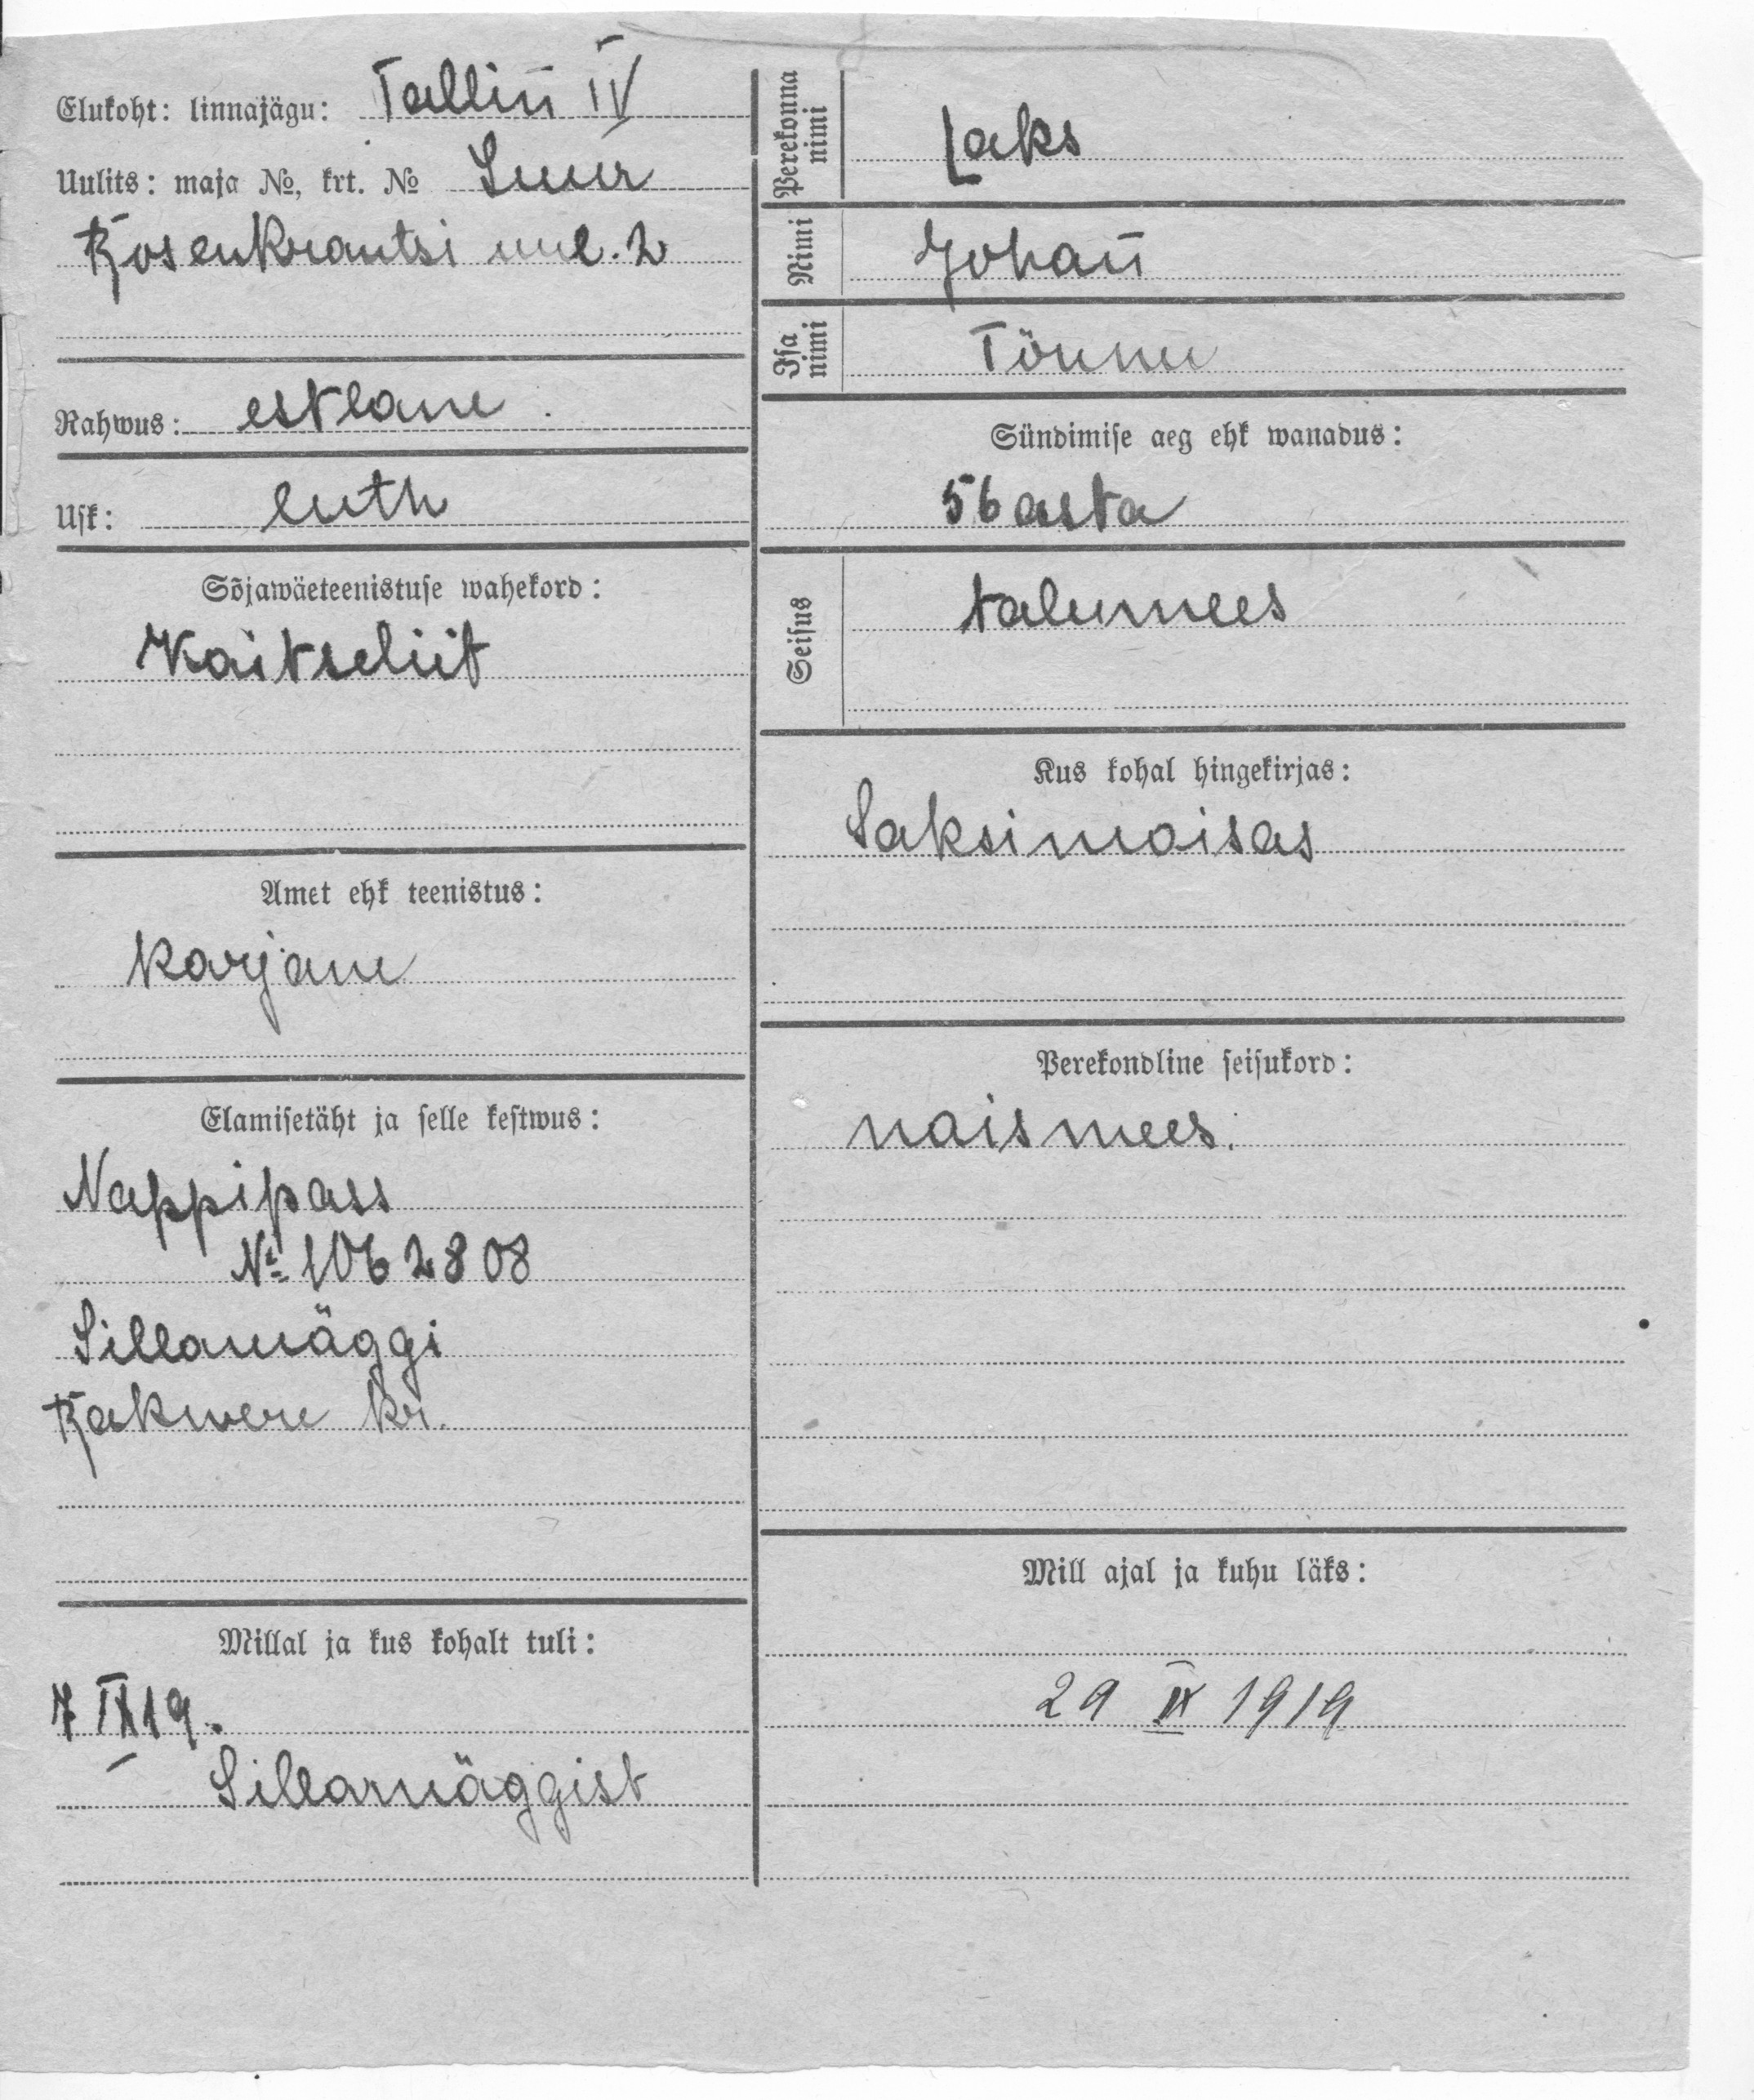 Elukoht: linnajägu: Tallin̄ IV
Uulits: maja №, krt. № Suur
Rosenkrantsi uul. 2
Rahwus: estlane.
Usk: luth
Sõjawäeteenistuse wahekord:
Kaitseliit
Amet ehk teenistus:
karjane
Elamisetäht ja selle kestwus:
Nappipass
№ 1062808
Sillamäggi
Rakwere kr.
Millal ja kus kohalt tuli:
7 IX 19.
Sillamäggist
Perekonna nimi
Laks
Nimi
Johan̄
Isa nimi
Tönnu
Sündimise aeg ehk wanadus:
56 aasta
Seisus
talumees
Kus kohal hingekirjas:
Saksimoisas
Perekondline seisukord:
naismees.
Mill ajal ja kuhu läks:
29 IX 1919